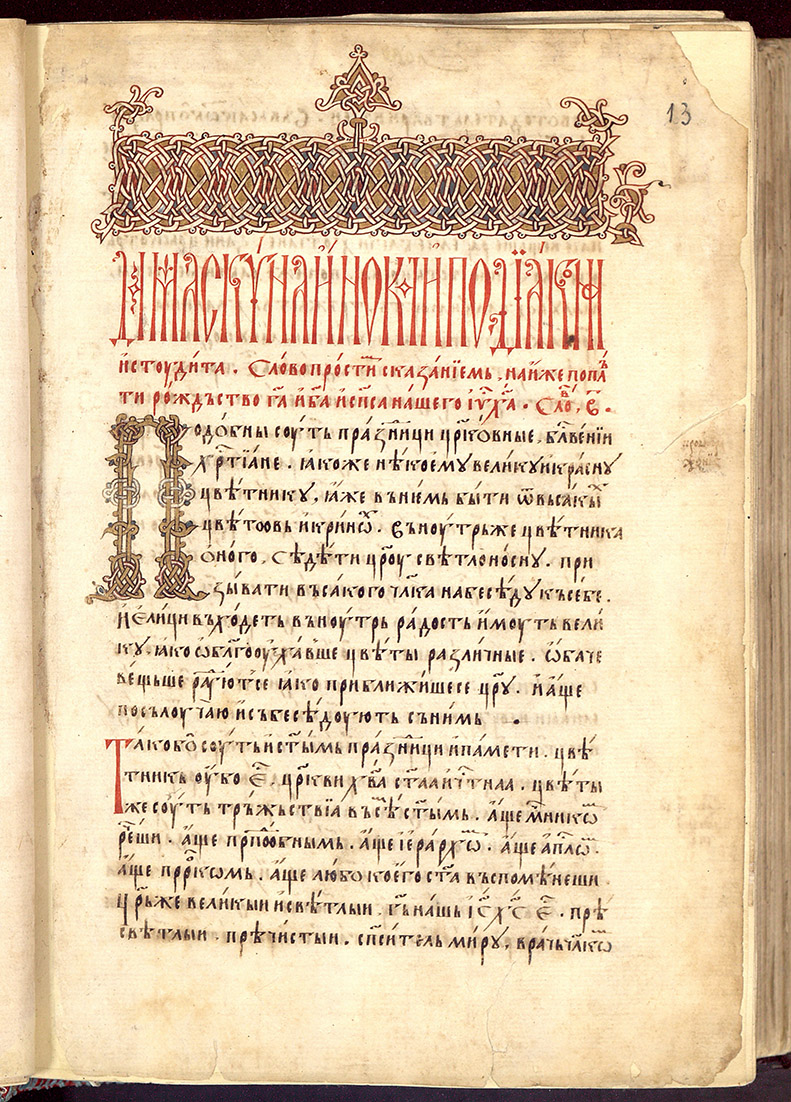 13
Дамаскѵ́на и́нока и́ѵподїа́кона
и҆стоудита . Сло́во прости́мь сказа́нїемь , на и҆же попль́
ти ро́ждьство га҃ и҆ ба҃ и҆ сп҃са на́шего і҆ѵ҃ х҃а . Сло́во , є҃ .
Подо́бны соу́ть пра́зⷣници цр҃ко́вные , бл҃ве́нїи
хрⷭ҇тїа́не . ꙗ҆́коже нѣ́коемѹ вели́кѹ и҆ кра́снѹ
цвѣ́тникѹ , ꙗ҆́же въ не́мь бы́ти ѿ въса́кыⷯ
цвѣ́товь и҆ кри́нѡⷡ . Въноу́трь же цвѣ́тника
о́ного , сѣдѣ́ти цр҃оу свѣтлоно́снѹ . при
зыва́ти въса́кого чл҃ка на бесѣ́дѹ къ себе .
И҆ е҆ли́ци въхо́деть въноу́трь ра́дость и҆́моуть вели́
кѹ . ꙗ҆́ко ѡ҆бл҃гооуха́вше цвѣ́ты разли́чные . ѡ҆ба́че
ве́щьше ра́дꙋютсе ꙗ҆́ко прибли́жишесе цр҃ѹ . и҆ а҆́ще
послоу́шаю и҆ събесѣ́доують съ ни́мь .
Та́ко бо̀ соу́ть и҆ ст҃ы́мь пра́зⷣници и҆ па́мети . цвѣ́
тникь оу҆́бо є҆ⷭ҇ , цр҃кви хв҃а ст҃аа и҆ чтⷭ҇наа . цвѣ́ты
же соу́ть трьжьствїа въсѣ́мь ст҃ы́мь . а҆́ще мч҃никѡⷨ
ре́щи . а҆́ще прⷣпⷪ҇бнымь . а҆́ще і҆ера́рхѡⷨ . а҆́ще а҆пⷭ҇лѡⷨ .
а҆́ще прⷪ҇ркомь . а҆́ще любо кое́го ст҃а въспоме́неши
цр҃ь же вели́кыи и҆ свѣ́тлыи . гь҃ на́шь і҆ѵ҃с х҃с є҆ⷭ҇ . прѣ
свѣ́тлыи . прѣчи́стыи . сп҃си́тель ми́рѹ , вра́чь чл҃кѡⷨ